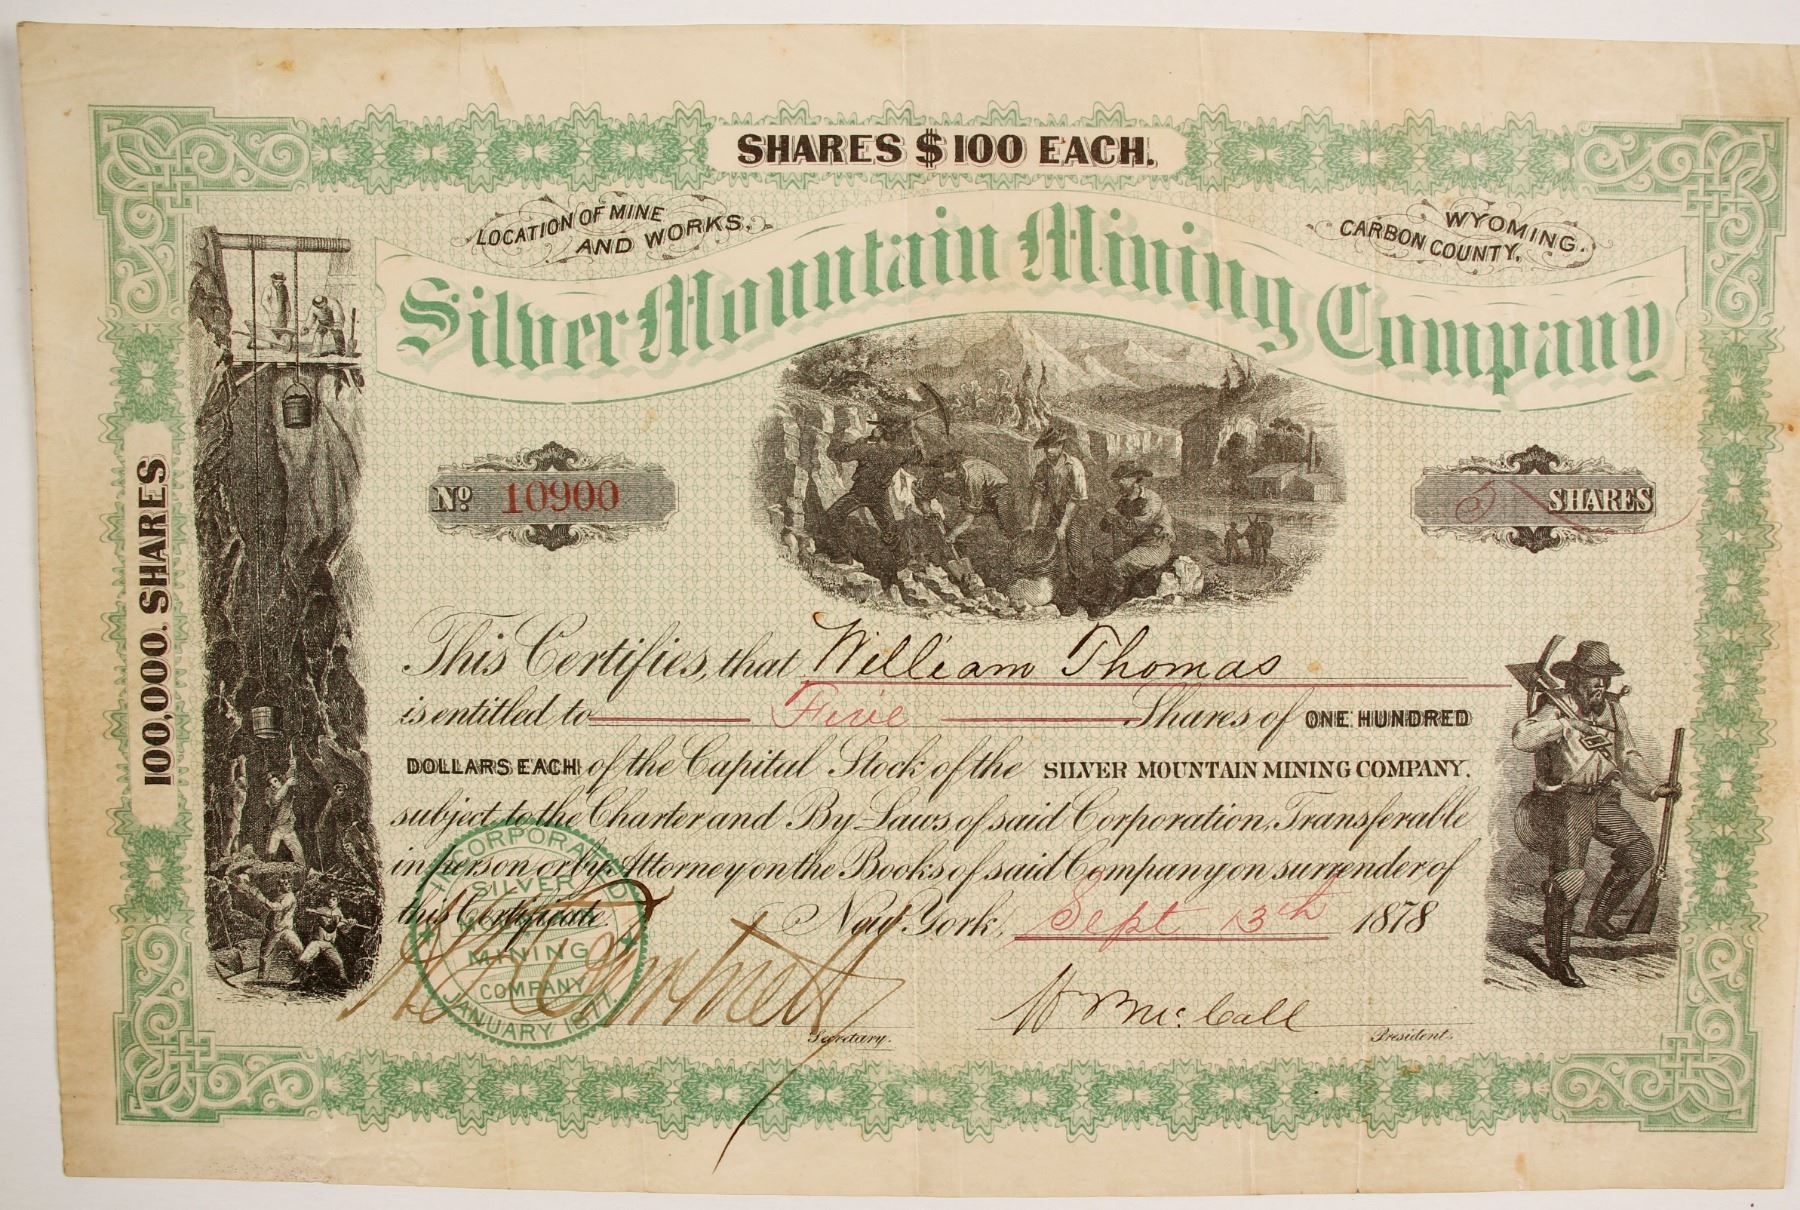 SHARES $100 EACH.
LOCATION OF MINE
AND WORKS.
WYOMING.
CARBON COUNTY,
Silver Mountain Mining Company
100,000. SHARES
No 10900
5 SHARES
This Certifies, that William Thomas
is entitled to Five Shares of ONE HUNDRED
DOLLARS EACH of the Capital Stock of the SILVER MOUNTAIN MINING COMPANY.
subject to the Charter and By-Laws of said Corporation, Transferable
in person or by Attorney on the Books of said Company on surrender of
this Certificate. New York, Sept 13th 1878
SILVER
MOUNTAIN
MINING
COMPANY
JANUARY 1877.
W B McCall
Secretary. President.